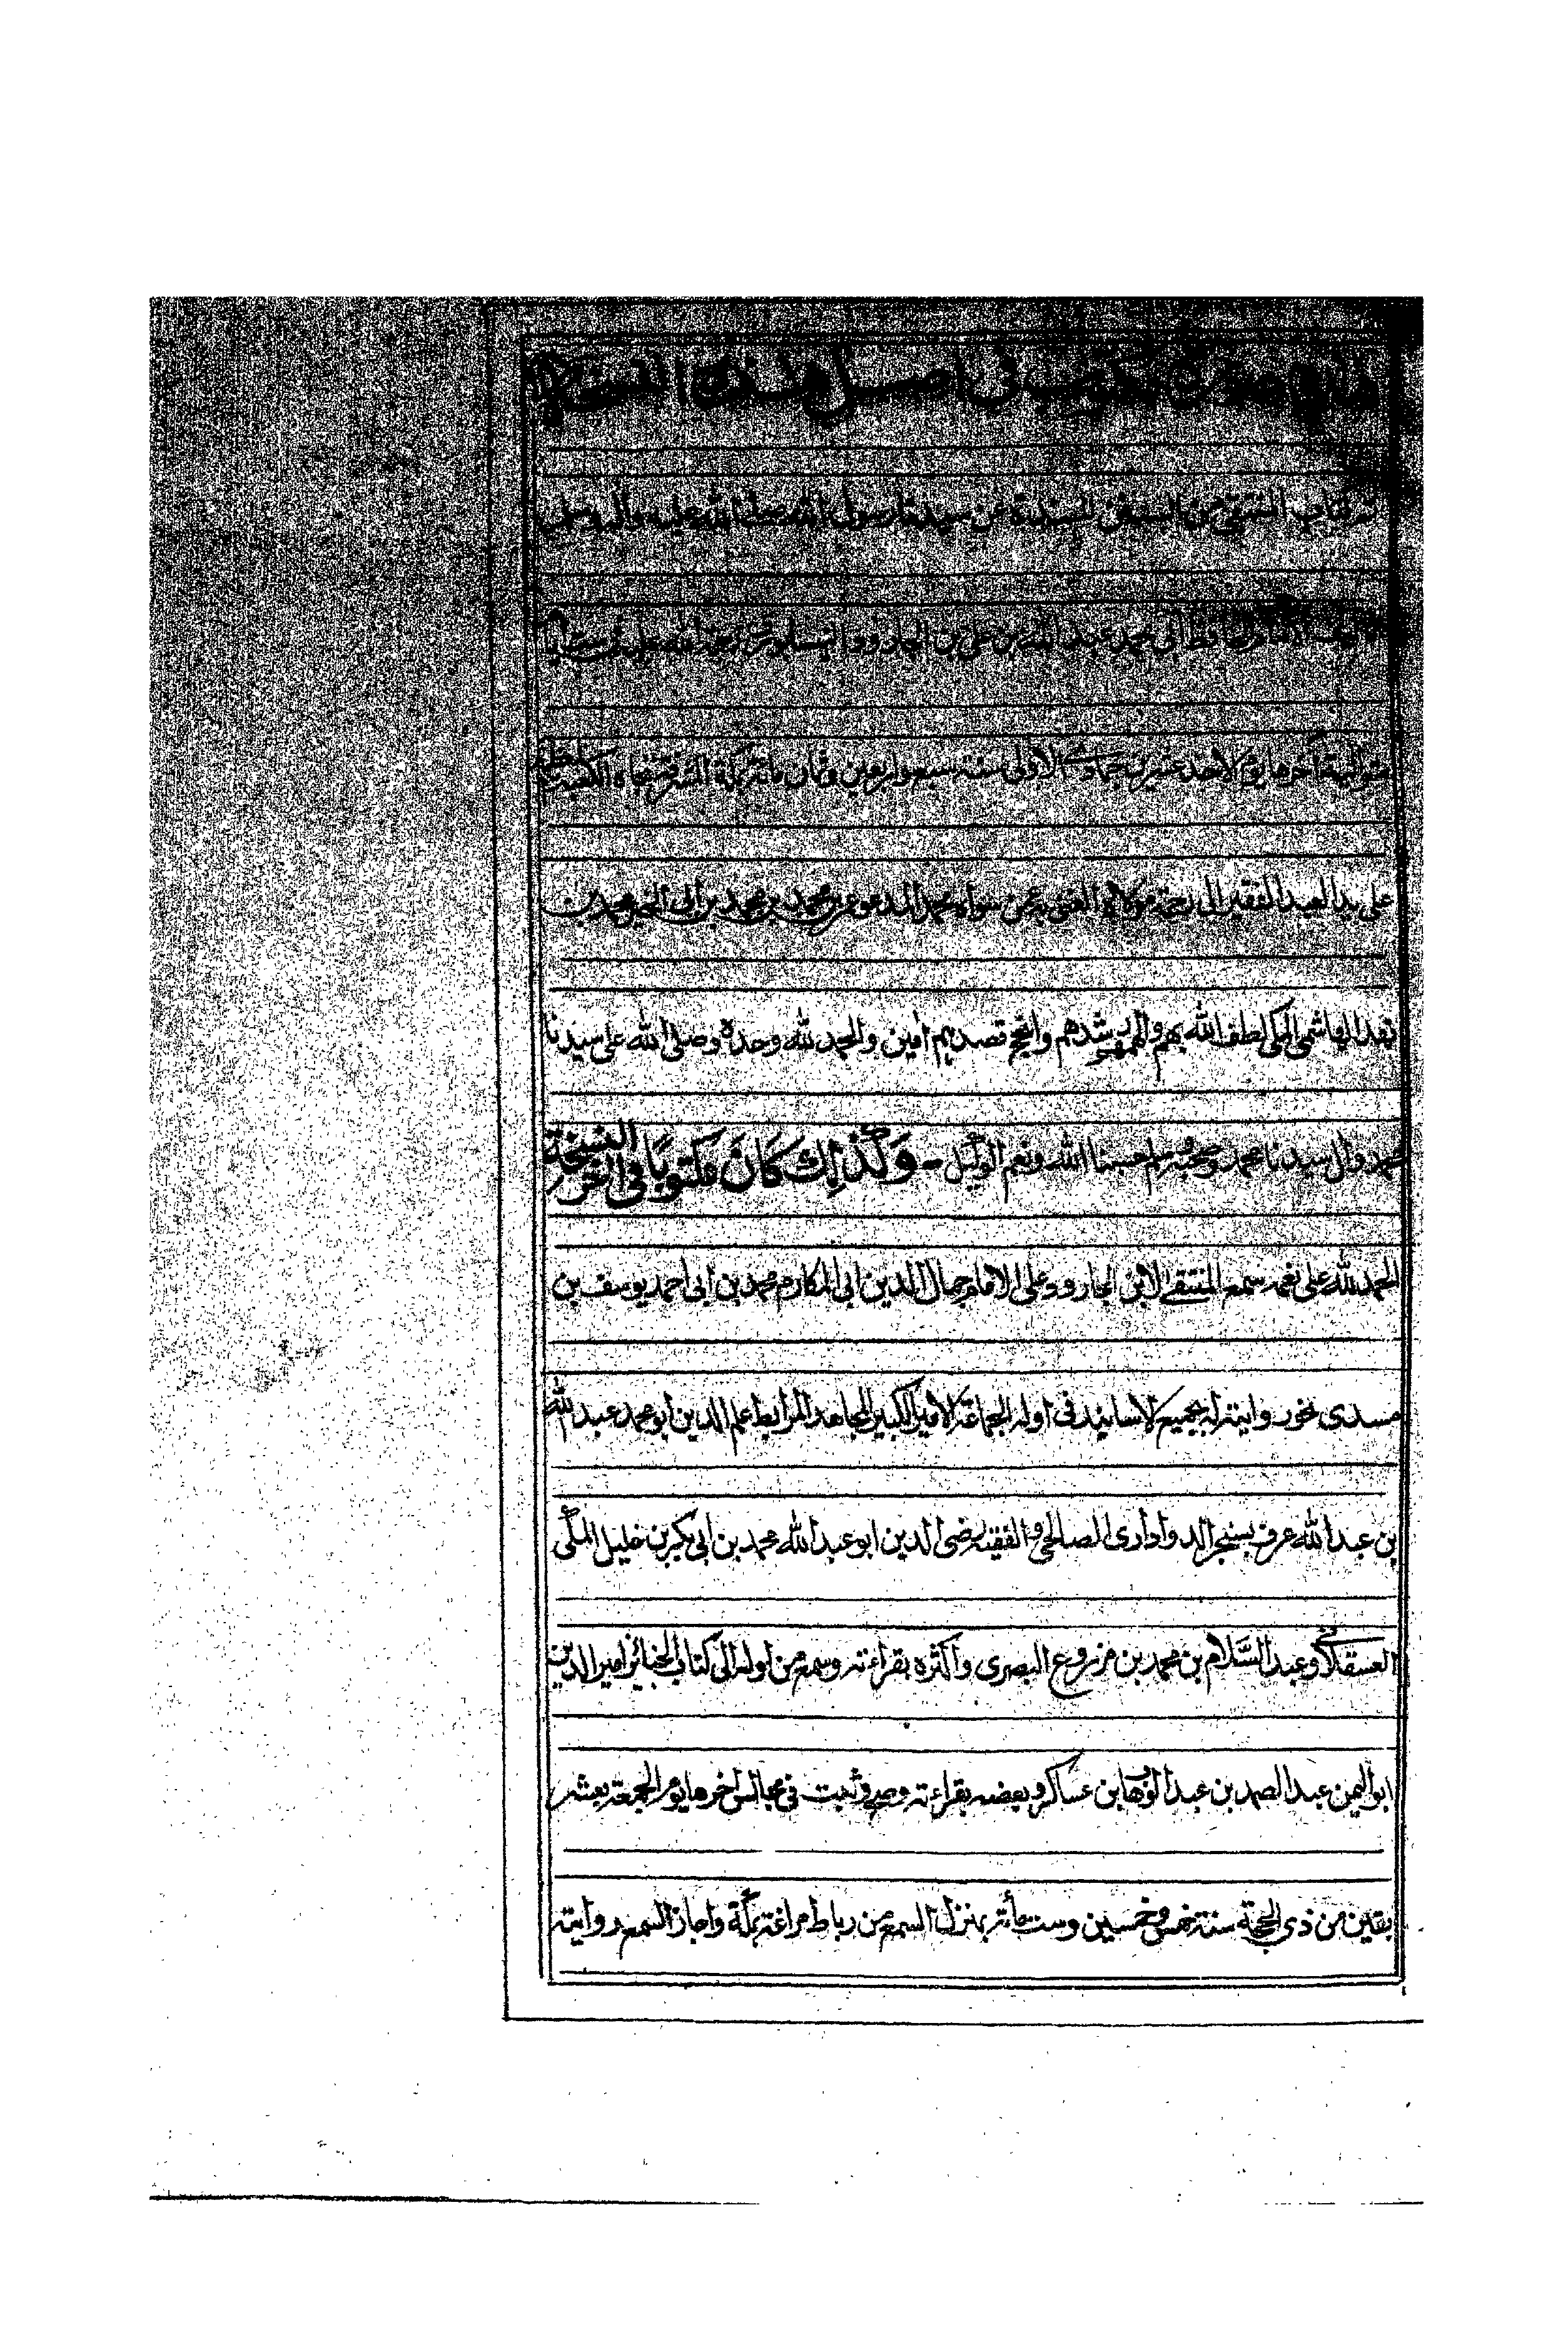 هذا في صورة المكتوب في اصل هذه النسخة
تم كتاب المنتقى من السنن المسندة عن سيدنا رسول الله صلى الله عليه وآله وسلم
الحافظ ابى محمد عبد الله بن على بن الجارود النيسابورى رحمة الله عليه فى
متوالية آخرها يوم الاحد عشر جمادى الاولى سنة سبع واربعين وثمان مائة بمكة المشرفة تجاه الكعبة
على يد العبد الفقير الى رحمة مولاه الغنى به عمن سواه محمد المدعو عمر بن محمد بن محمد بن ابى الخير محمد بن
فهد الهاشمى المكى لطف الله بهم والهمهم رشدهم وانجح قصدهم آمين والحمد لله وحده وصلى الله على سيدنا
محمد وآل سيدنا محمد وصحبه وسلم حسبنا الله ونعم الوكيل - وَكَذٰلِكَ كَانَ مَكْتُوبًا فِى آخر النسخة
الحمد لله على نعمه سمع المنتقى لابن الجارود على الامام جمال الدين ابى المكارم محمد بن ابى احمد يوسف بن
مسدى بخور وايته له بجميع الاسانيد فى اوله الجماعة الامير الكبير المجاهد المرابط علم الدين ابو محمد عبد الله
بن عبد الله عرف بسنجر الدوادارى الصالحى والفقيه رضى الدين ابو عبد الله محمد بن ابى بكر بن خليل المكى
العسقلانى وعبد السَّلام بن محمد بن مزروع البصرى واكثره بقراءته وسمع من اوله الى كتاب الجنائز امين الدين
ابو اليمن عبد الصمد بن عبد الوهاب بن عساكر وبعضه بقراءته وصح وثبت فى مجالس اخرها يوم الجمعة لعشر
بقين من ذى الحجة سنة خمس وخمسين وست مائة بمنزل المسمع من رباط مراغة بمكة واجاز المسمع روايته